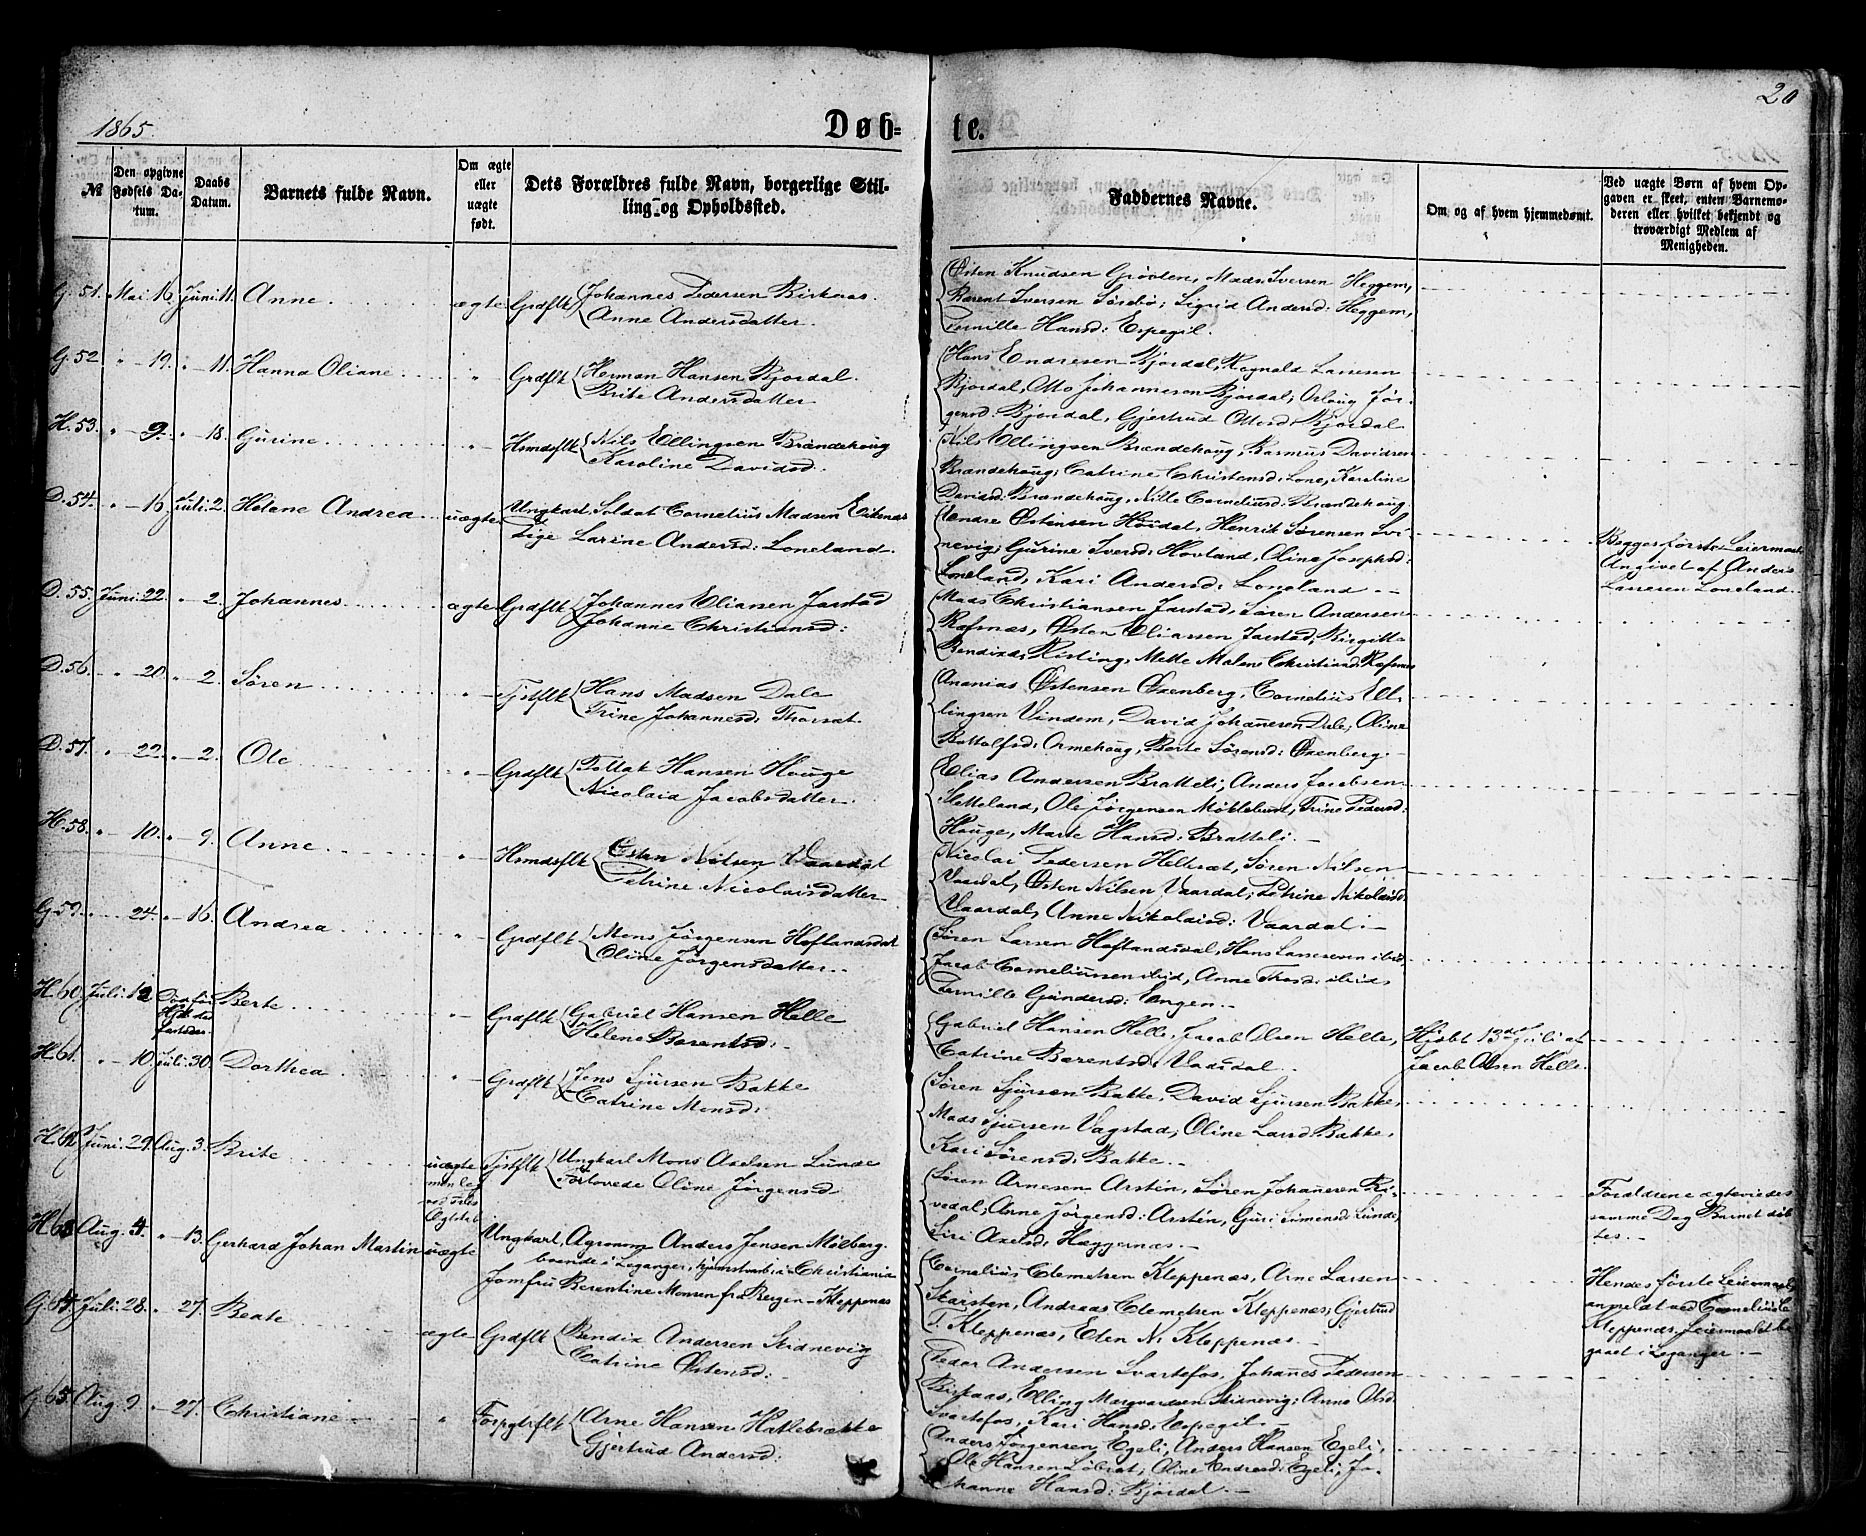 1865.
Døb=
te.
20
№
Den opgivne Fødsels Datum.
Daabs Datum.
Barnets fulde Navn.
Om ægte eller uægte født.
Dets Forældres fulde Navn, borgerlige Stilling og Opholdssted.
Faddernes Navne.
Om og af hvem hjemmedøbt.
Ved uægte Børn af hvem Opgaven er skeet, enten Barnemoderen eller hvilket bekjendt og troværdigt Medlem af Menigheden.
G. 51. Mai 16 Juni 11. Anne ægte Grdflk Johannes Pedersen Birkaas.
Anne Andersdatter.
Østen Knudsen Grøvlen, Mads Iversen Heggem,
Barent Iversen Sørebø; Sigrid Andersd: Heggem,
Pernille Hansd: Espegil.
G. 52 " 19. " 11. Hanna Oliane " Grdflk Herman Hansen Bjordal.
Brite Andersdatter
Hans Endresen Bjordal, Rognald Lassesen
Bjordal, Otto Johannesen Bjordal; Orloug Jør-
gensd: Bjordal, Gjertrud Ottesd: Bjordal
H. 53. " 9. " 18. Gurine " Hsmdsflk Nils Ellingsen Brændehoug
Karoline Davidsd:
Nils Ellingsen Brændehoug, Rasmus Davidsen
Brændehoug; Catrine Christensd: Lone, Karoline
Davidsd: Brændehoug, Nille Corneliusd: Brændehoug
D. 54. " 16 Juli 2. Helene Andrea uægte Ungkarl Soldat Cornelius Madsen Eikenæs
Pige Larine Andersd: Loneland.
Endre Østensen Høidal, Henrik Sørensen
nevig; Gurine Iversd: Hovland, Oline Josephsd:
Loneland, Kari Andersd: Loneland
Begges første Leiermaal
Angivet af Anders
Lassesen Loneland.
D. 55. Juni 22. " 2. Johannes ægte Grdflk Johannes Eliassen Jarstad
Johanne Christiansd:
Mads Christiansen Jarstad, Søren Andersen
Ræfsnæs, Østen Eliassen Jarstad; Birgitte
Bendixd: Kisting, Mette Malene Christiansd: Ræfsnæs
D. 56. " 20. " 2. Søren " Tjstflk Hans Madsen Dale
Trine Johannesd: Thorsat.
Ananias Østensen Øxenberg, Cornelius El-
lingsen Vindem, David Johannesen Dale; Oline
Bottolfsd: Ormehoug, Berte Sørensd: Øxenberg.
D. 57. " 22. " 2. Ole " Grdflk Tollak Hansen Houge
Nicolaia Jacobsdatter.
Elias Andersen Bratteli; Anders Jacobsen
Sletteland, Ole Jørgensen Møklebust, Trine Pedersd:
Houge, Marte Hansd: Bratteli.
H. 58. " 10. " 9. Anne " Hsmdsflk Østen Nilsen Vaardal
Petrine Nicolaisdatter
Nicolai Pedersen Helleset, Søren Nilsen
Vaardal, Østen Nilsen Vaardal; Petrine Nikolaisd:
Vaardal, Anne Nikolaisd: Vaardal.
G. 59. " 24. " 16. Andrea " Grdflk Mons Jørgensen Hoflandsdal
Oline Jørgensdatter.
Søren Larsen Hoflandsdal, Hans Lassesen ibid,
Jacob Corneliussen ibid, Anne Thosd: ibid,
Pernille Gundersd: Engen.
H. 60. Juli 12 Berte " Grdflk Gabriel Hansen Helle
Helene Barentsd:
Gabriel Hansen Helle, Jacob Olsen Helle,
Catrine Barentsd: Vadsdal.
Hjdbt 13de Juli af
Jacob Olsen Helle.
H. 61. " 10. Juli 30. Dorthea " Grdflk Jens Sjursen Bakke
Catrine Monsd:
Søren Sjursen Bakke, David Sjursen Bakke,
Mads Sjursen Vagstad; Oline Larsd: Bakke,
Kari Sørensd: Bakke.
H. 62 Juni 29. Aug. 3. Brite uægte Tjstflk Ungkarl Mons Axelsen Lunde
Forlovede Oline Jørgensd
Søren Arnesen Arsten, Søren Johannesen Ri-
vedal; Anne Jørgensd: Arsten, Guri Simensd: Lunde,
Siri Axelsd: Hæggernæs.
Forældrene ægteviedes
samme Dag Barnet døb-
tes.
H. 63 Aug. 4. " 13. Gerhard Johan Martin uægte Ungkarl, Agronom Anders Jensen Mølberg.
boende i Leganger, hjemstavn i Christiania
Jomfru Berentine Monsen fra Bergen - Kleppenæs
Cornelius Clemetsen Kleppenæs, Arne Larsen
Skarsten, Andreas Clemetsen Kleppenæs; Gjertrud
T. Kleppenæs, Elen N. Kleppenæs.
Hendes første Leiermaal,
anmeldt ved Cornelius Cl.
Kleppenæs. Leiermaalet be-
gaaet i Leganger.
G. 64. Juli 28. " 27. Beate ægte Grdflk Bendix Andersen Skidnevig
Catrine Østensd:
Peder Andersen Svartefos, Johannes Pedersen
Birkaas, Elling Margvardsen Skidnevig; Anne Olsd:
Svartefos, Kari Hansd: Espegil.
G. 65. Aug. 9 " 27. Christiane " Forpgtrflk Arne Hansen Hatlebrække
Gjertrud Andersd:
Anders Jørgensen Egeli, Anders Hansen Egeli,
Ole Hansen; Oline Endresd: Egeli, Jo-
hanne Hansd: Bjordal.